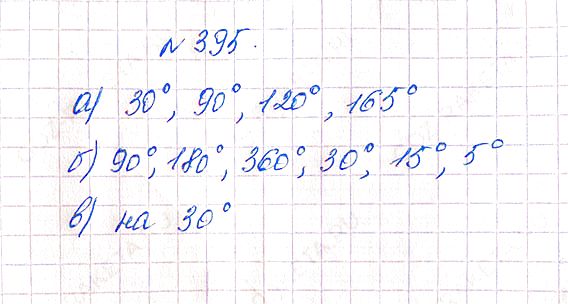 № 395.
а) 30°, 90°, 120°, 165°
б) 90°, 180°, 360°, 30°, 15°, 5°
в) на 30°